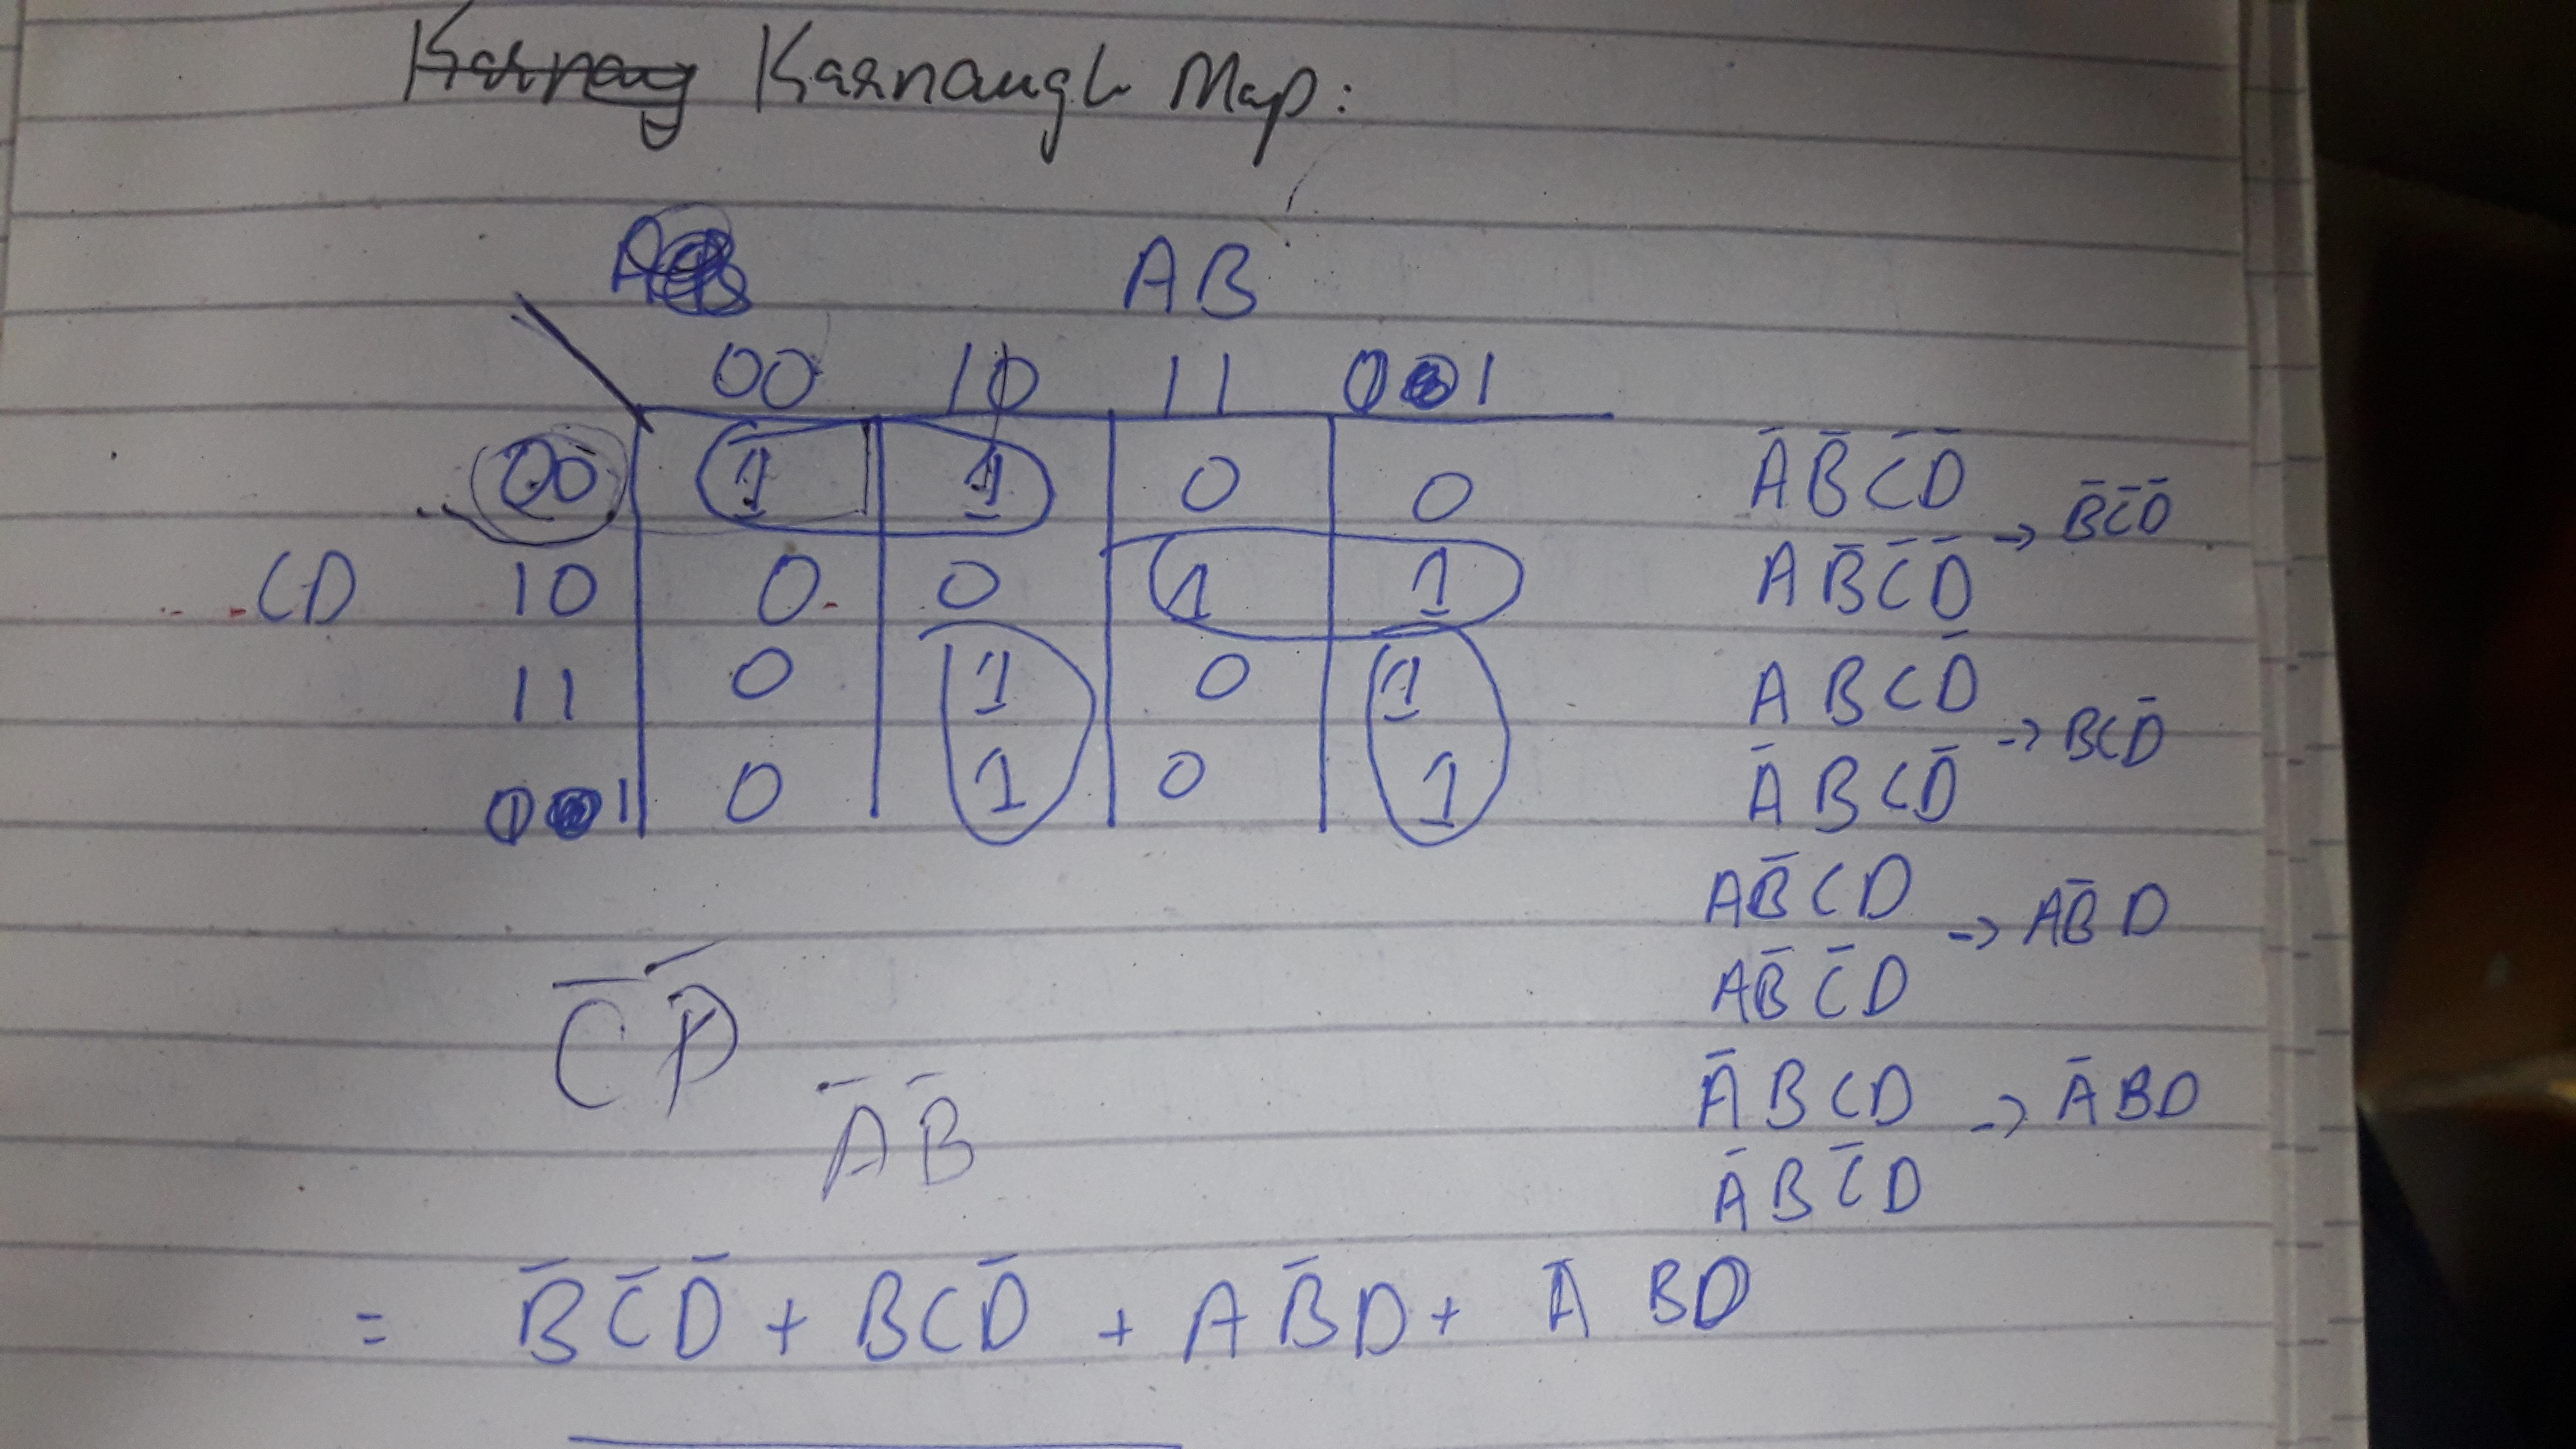 Karnaugh Map:
AB
00 10 11 01
00 1 1 0 0
CD 10 0 0 1 1
11 0 1 0 1
01 0 1 0 1
A̅ B̅ C̅ D̅
→ B̅ C̅ D̅
A B̅ C̅ D̅
A B C D̅
→ B C D̅
A̅ B C D̅
A B̅ C D
→ A B̅ D
A B̅ C̅ D
A̅ B C D
→ A̅ B D
A̅ B C̅ D
C̅ D̅
A̅ B̅
= B̅ C̅ D̅ + B C D̅ + A B̅ D + A̅ B D